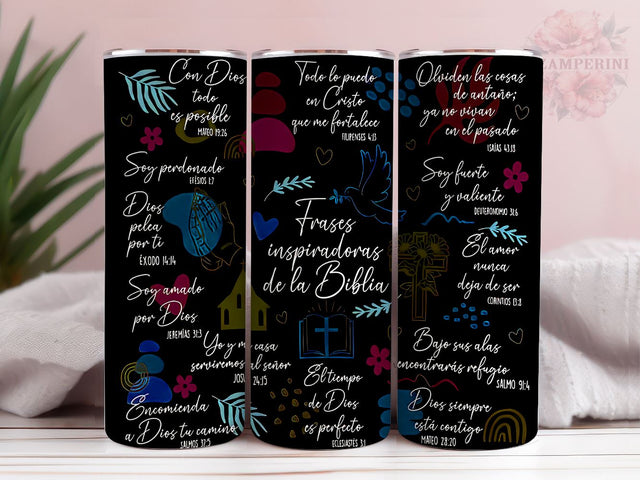 Con Dios
todo
es posible
MATEO 19:26
Soy perdonado
EFÉSIOS 1:7
Dios
pelea
por ti
ÉXODO 14:14
Soy amado
por Dios
JEREMÍAS 31:3
Yo y mi casa
serviremos al señor
JOSU 24:15
Encomienda
a Dios tu camino
SALMOS 37:5
Todo lo puedo
en Cristo
que me fortalece
FILIPENSES 4:13
Frases
inspiradoras
de la Biblia
El tiempo
de Dios
es perfecto
ECLESIASTÉS 3:1
Olviden las cosas
de antaño;
ya no vivan
en el pasado
ISAÍAS 43:18
Soy fuerte
y valiente
DEUTERONOMIO 31:6
El amor
nunca
deja de ser
CORINTIOS 13:8
Bajo sus alas
encontrarás refugio
SALMO 91:4
Dios siempre
está contigo
MATEO 28:20